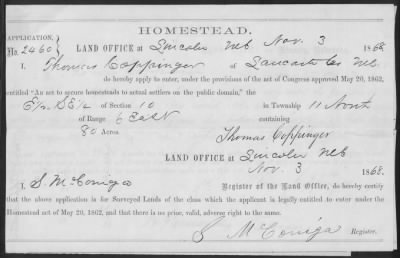 HOMESTEAD.
APPLICATION,
No. 2460
LAND OFFICE at Lincoln Neb Nov. 3 1868
I, Thomas Coppinger of Lancaster Co Neb
do hereby apply to enter, under the provisions of the act of Congress approved May 20, 1862,
entitled "An act to secure homesteads to actual settlers on the public domain," the
E/2 SE/4 of Section 10 in Township 11 North
of Range 6 East containing
80 Acres
Thomas Coppinger
LAND OFFICE at Lincoln Neb
Nov. 3 1868.
I, S. McConiga Register of the Land Office, do hereby certify
that the above application is for Surveyed Lands of the class which the applicant is legally entitled to enter under the
Homestead act of May 20, 1862, and that there is no prior, valid, adverse right to the same.
S McConiga Register.